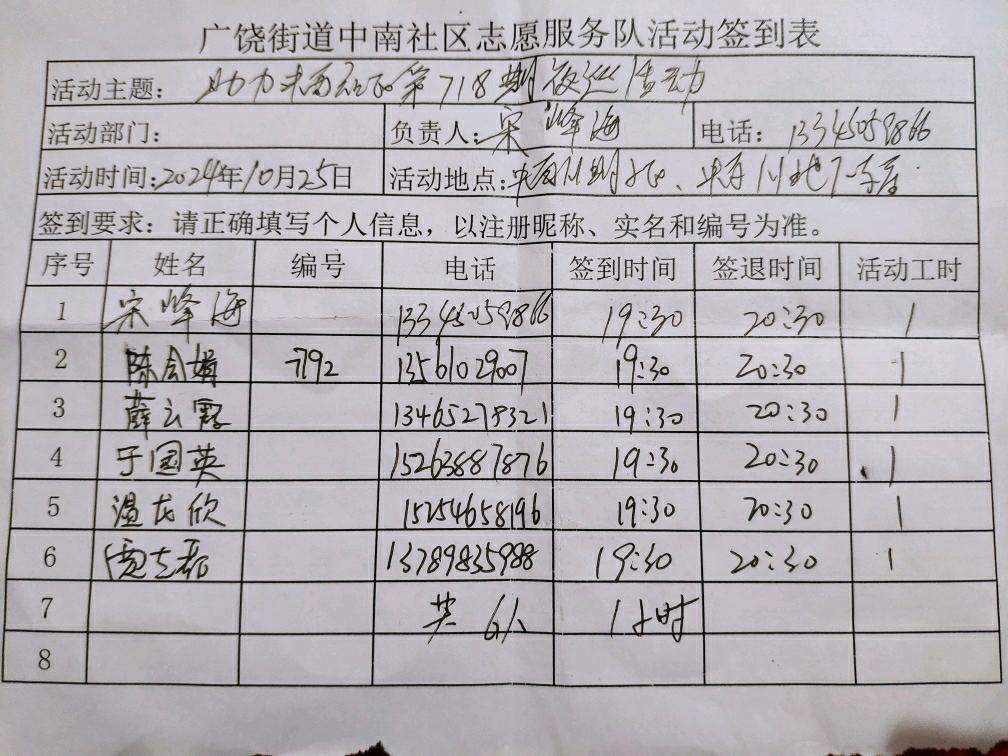 广饶街道中南社区志愿服务队活动签到表
活动主题: 助力 第718期夜巡活动
活动部门: 负责人: 宋峰海 电话: 13345059866
活动时间: 2024年10月25日 活动地点:
签到要求: 请正确填写个人信息，以注册昵称、实名和编号为准。
序号 姓名 编号 电话 签到时间 签退时间 活动工时
1 宋峰海 13345059866 19:30 20:30 1
2 陈会娟 7192 13561029007 19:30 20:30 1
3 薛云霞 13465278321 19:30 20:30 1
4 于国英 15263887876 19:30 20:30 1
5 温龙欣 15254658196 19:30 20:30 1
6 13789835988 19:30 20:30 1
7 共6人 1小时
8